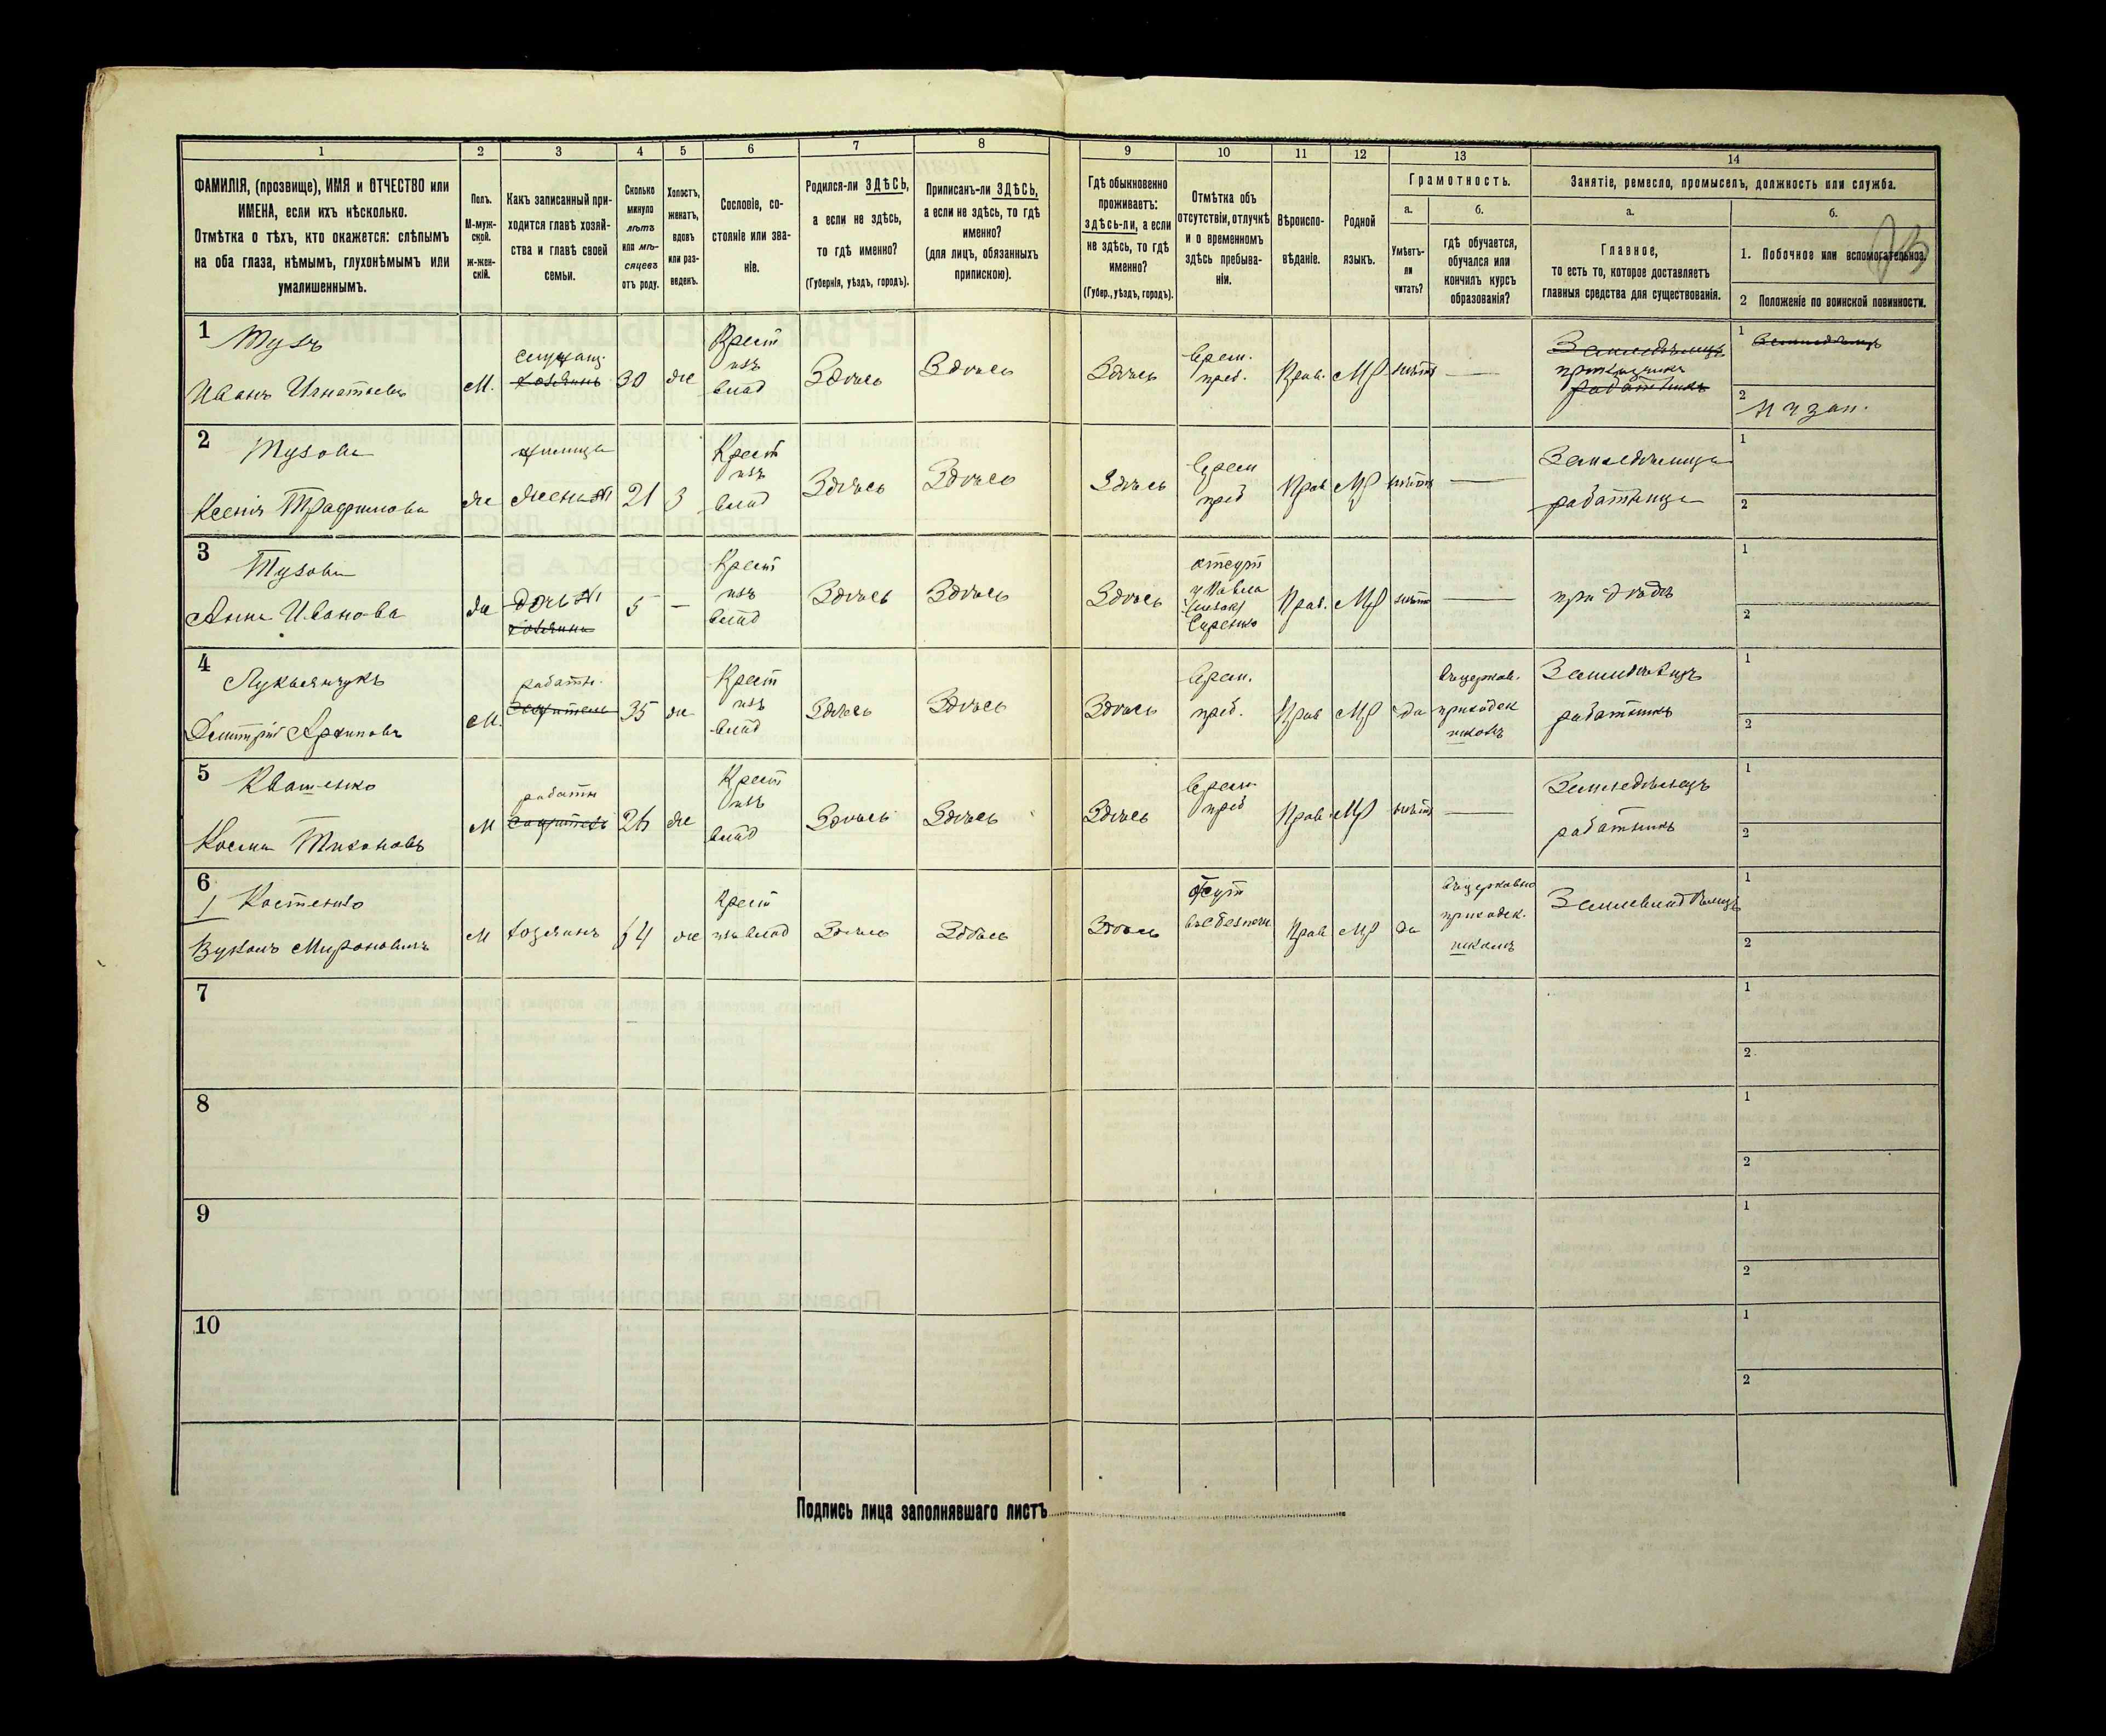 1 2 3 4 5 6 7 8 9 10 11 12 13 14
ФАМИЛІЯ, (прозвище), ИМЯ и ОТЧЕСТВО или
ИМЕНА, если ихъ нѣсколько.
Отмѣтка о тѣхъ, кто окажется: слѣпымъ
на оба глаза, нѣмымъ, глухонѣмымъ или
умалишеннымъ.
Полъ.
М-муж-
ской.
ж-жен-
скій.
Какъ записанный при-
ходится главѣ хозяй-
ства и главѣ своей
семьи.
Сколько
минуло
лѣтъ
или мѣ-
сяцевъ
отъ роду.
Холостъ,
женатъ,
вдовъ
или раз-
веденъ.
Сословіе, со-
стояніе или зва-
ніе.
Родился-ли ЗДѢСЬ,
а если не здѣсь,
то гдѣ именно?
(Губернія, уѣздъ, городъ).
Приписанъ-ли ЗДѢСЬ,
а если не здѣсь, то гдѣ
именно?
(для лицъ, обязанныхъ
припискою).
Гдѣ обыкновенно
проживаетъ:
ЗДѢСЬ-ЛИ, а если
не здѣсь, то гдѣ
именно?
(Губер., уѣздъ, городъ).
Отмѣтка объ
отсутствіи, отлучкѣ
и о временномъ
здѣсь пребыва-
ніи.
Вѣроиспо-
вѣданіе.
Родной
языкъ.
Грамотность.
а.
Умѣетъ-
ли
читать?
б.
гдѣ обучается,
обучался или
кончилъ курсъ
образованія?
Занятіе, ремесло, промыселъ, должность или служба.
а.
Главное,
то есть то, которое доставляетъ
главныя средства для существованія.
б.
1. Побочное или вспомогательное.
2 Положеніе по воинской повинности.
1
Тузъ
Иванъ Игнатьевъ
М.
хозяинъ
30
же
Крест
изъ
влад
Здѣсь
Здѣсь
Здѣсь
Врем.
преб.
Прав.
МР
нѣтъ
приказчикъ
работникъ
1
2
2
Тузова
Ксенія Трафимова
же
жена №1
21
З
Крест
изъ
влад
Здѣсь
Здѣсь
Здѣсь
Врем
преб
Прав
МР
нѣтъ
Земледѣлица
работница
1
2
3
Тузова
Анна Иванова
же
дочь №1
хозяина
5
—
Крест
изъ
влад
Здѣсь
Здѣсь
Здѣсь
отсут
Прав.
МР
нѣтъ
при дѣдѣ
1
2
4
Лукьянчукъ
Дмитрій Архиповъ
М.
работн.
35
же
Крест
изъ
влад
Здѣсь
Здѣсь
Здѣсь
Врем.
преб.
Прав
МР
да
въ церков.
приходск
школѣ
работникъ
1
2
5
Квашенко
Косма Тихоновъ
М
работн
26
же
Крест
изъ
влад
Здѣсь
Здѣсь
Здѣсь
Врем.
преб
Прав
МР
нѣтъ
Земледѣлецъ
работникъ
1
2
6
1 Костенко
Вуколъ Мироновичъ
М
хозяинъ
54
же
Крест
изъ влад
Здѣсь
Здѣсь
Здѣсь
Отсут
Прав
МР
да
въ церковно
приходск.
школѣ
1
2
7
1
2
8
1
2
9
1
2
10
1
2
Подпись лица заполнявшаго листъ